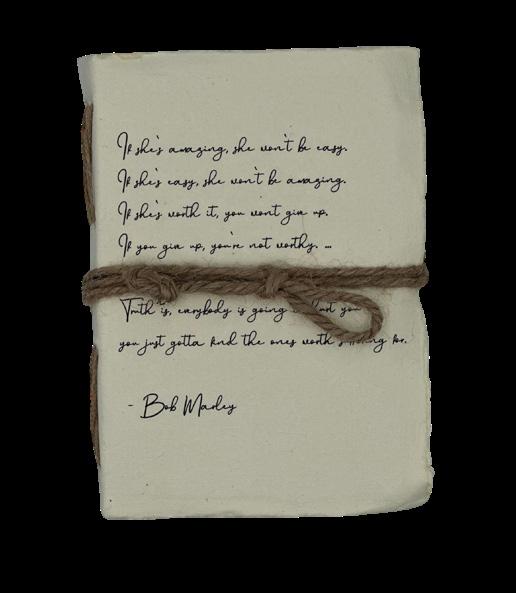 If she's amazing, she won't be easy.
If she's easy, she won't be amazing.
If she's worth it, you wont give up.
If you give up, you're not worthy. ...
Truth is, everybody is going hurt you
you just gotta find the ones worth for.
- Bob Marley